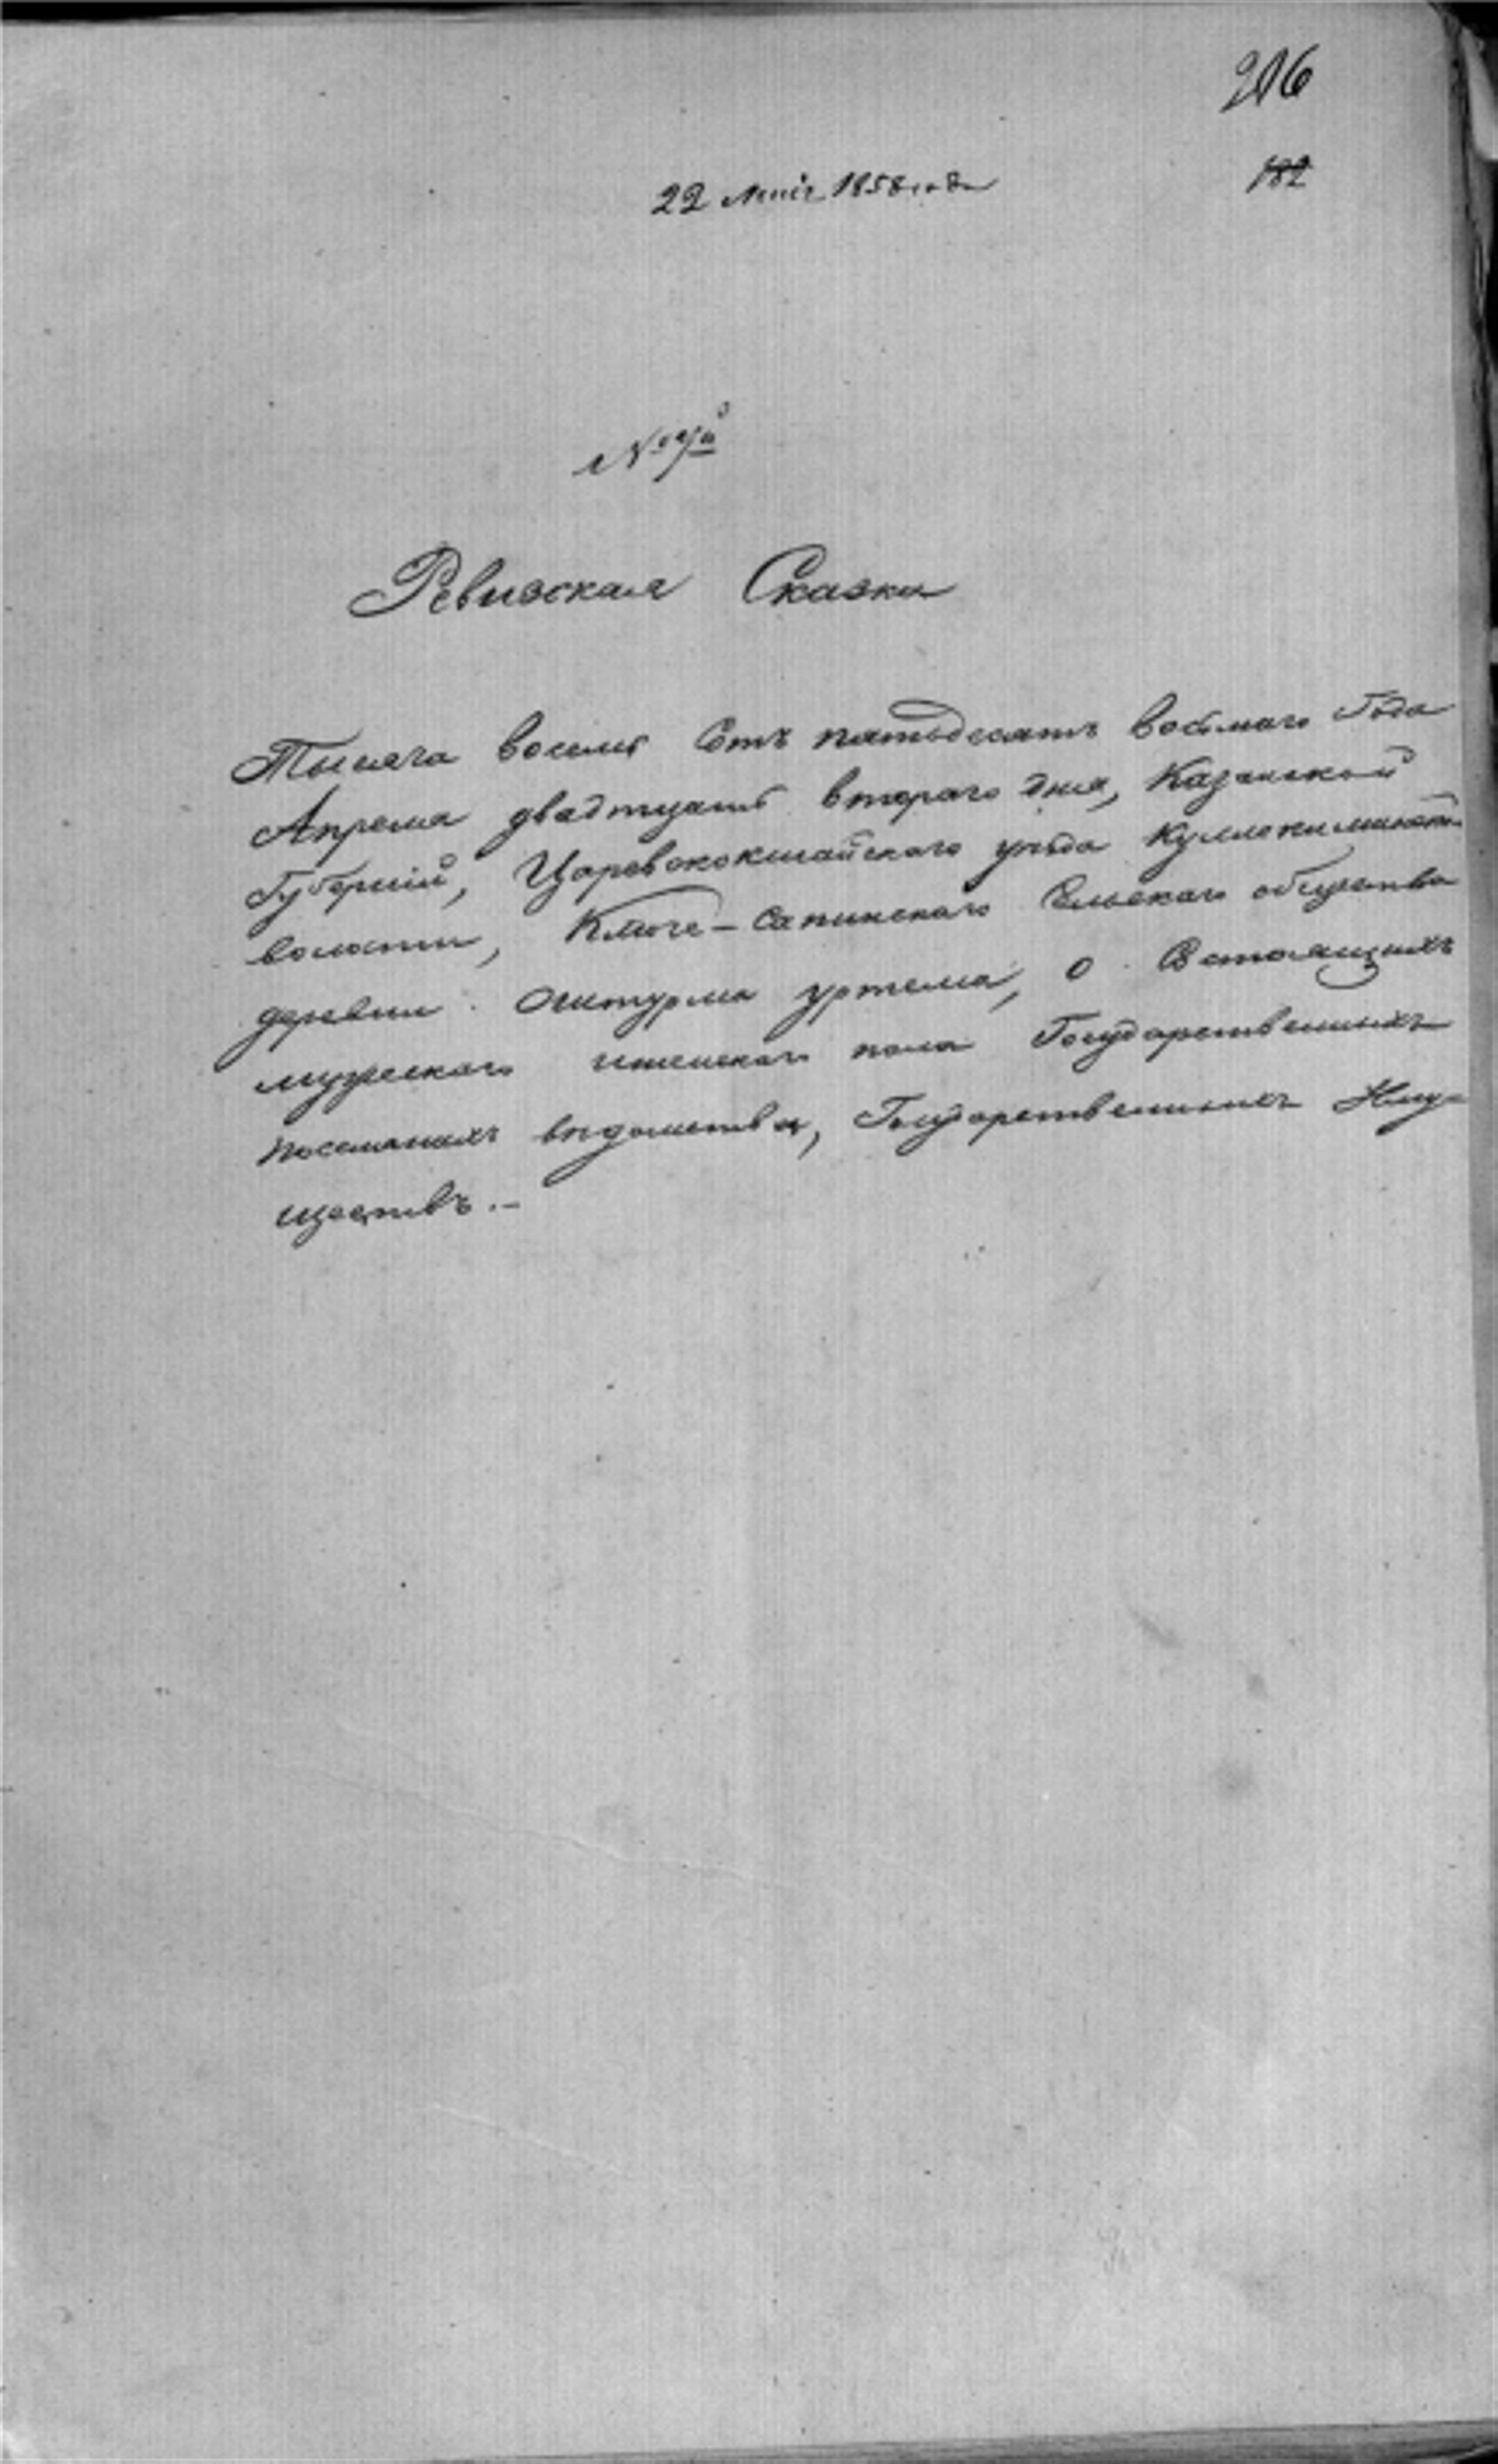 206
182
22 Мая 1858 года
№ 7й
Ревизская Сказка
Тысяча восемь Сотъ пятьдесятъ восьмаго Года
Апреля двадтцать втораго дня, Казанской
Губерніи, Царевококшайскаго уезда Кулле-киминской
волости, Ключе-Сапинскаго Сельскаго общества
деревни Ошторма уртема, о Состоящихъ
мужескаго и женскаго пола Государственныхъ
поселянахъ ведомства, Государственныхъ Иму-
ществъ.-